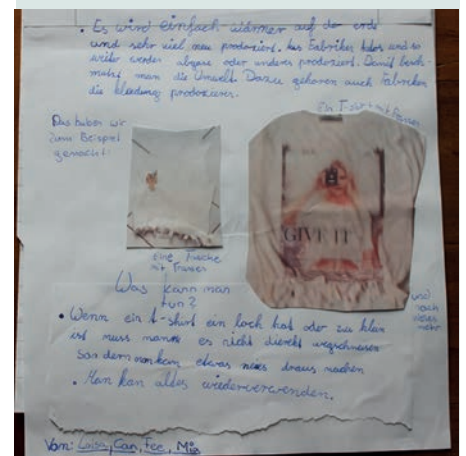 • Es wird einfach wärmer auf der erde
und sehr viel neu produziert. Aus Fabriken kdos und so
weiter werden abgase oder anderes produziert. Damit besch-
mutzt man die Umwelt Dazu gehören auch Fabriken
die kleidung produzieren.
Ein T-shirt mit Fransen
Das haben wir
zum Beispiel
gemacht:
GIVE IT
Eine Tasche
mit Fransen
Was kann man
tun?
und
noch
vieles
mehr
• Wenn ein t-shirt ein loch hat oder zu klein
ist muss man es nicht direkt wegschmeisen
Sondern man kan etwas neues draus machen
• Man kan alles wiederverwenden.
Von: Luisa, Can, Fee, Mia